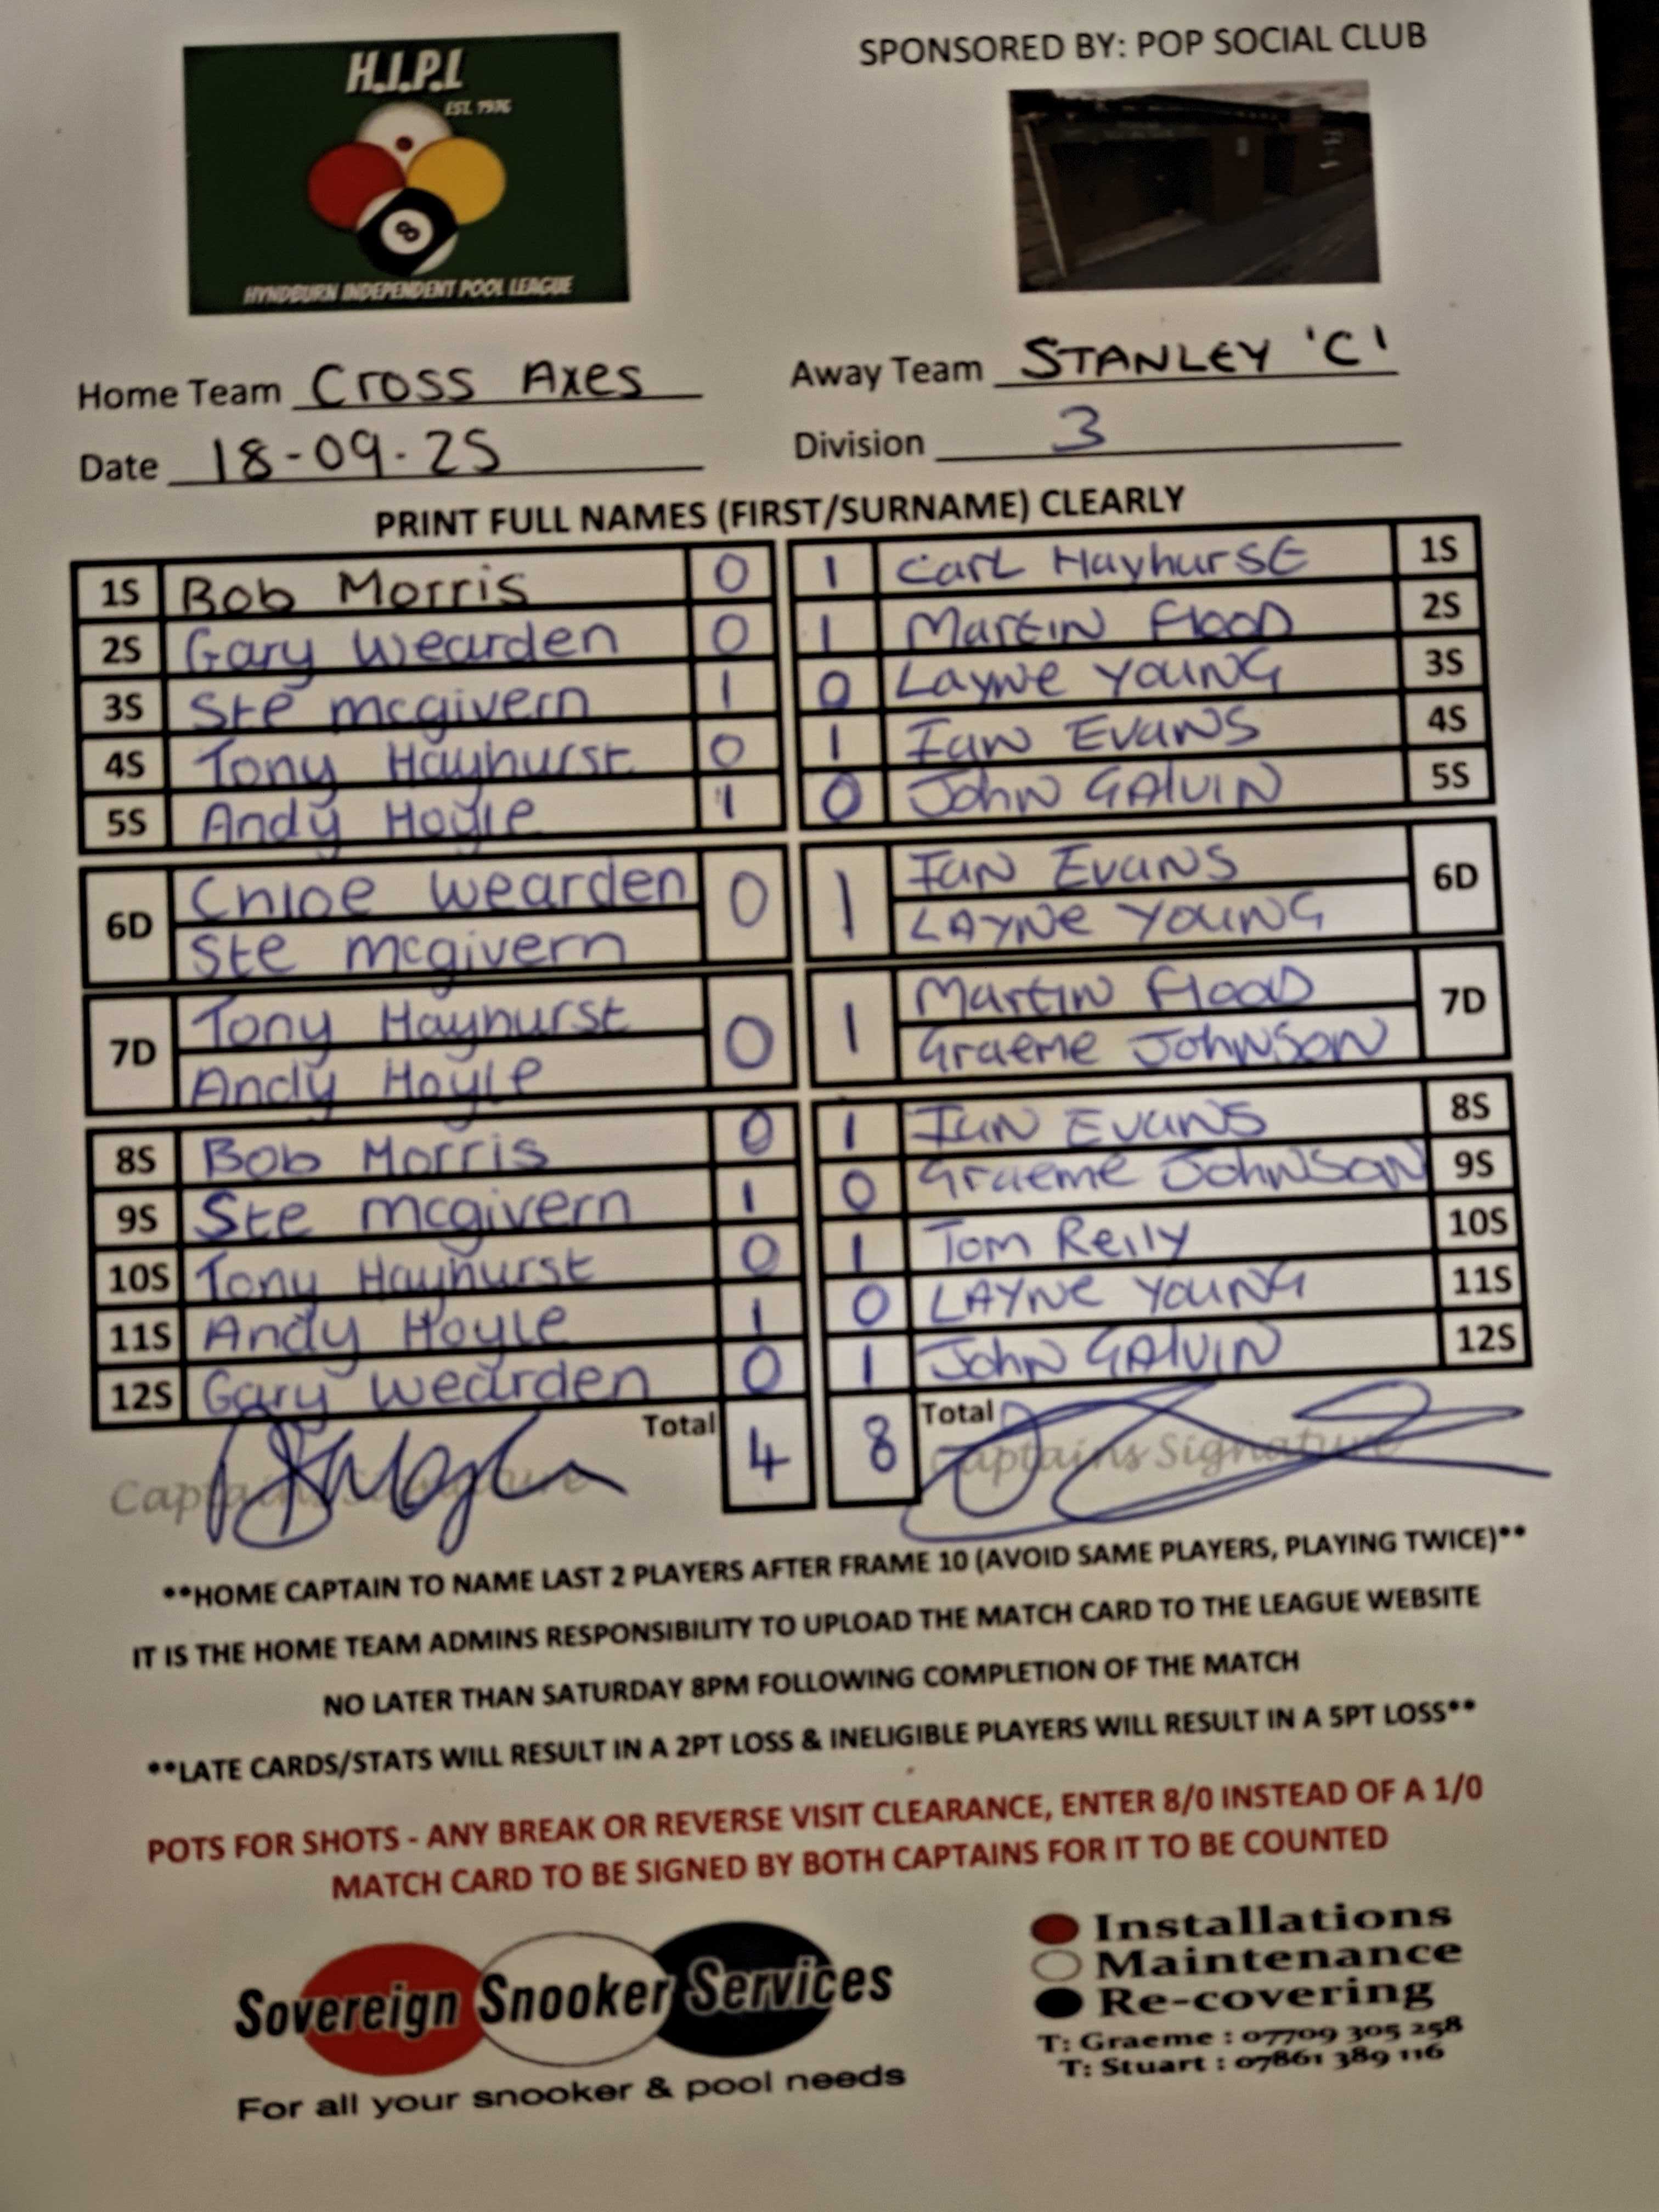 H.I.P.L
EST. 1976
HYNDBURN INDEPENDENT POOL LEAGUE
8
SPONSORED BY: POP SOCIAL CLUB
Home Team Cross Axes
Away Team STANLEY 'C'
Date 18-09-25
Division 3
PRINT FULL NAMES (FIRST/SURNAME) CLEARLY
1S Bob Morris 0 1 Carl Hayhurst 1S
2S Gary Wearden 0 1 Martin Flood 2S
3S Ste mcgivern 1 0 Layne Young 3S
4S Tony Hayhurst 0 1 Ian Evans 4S
5S Andy Hoyle 1 0 John Galvin 5S
6D Chloe Wearden 0 1 Ian Evans 6D
Ste mcgivern Layne Young
7D Tony Hayhurst 0 1 Martin Flood 7D
Andy Hoyle Graeme Johnson
8S Bob Morris 0 1 Ian Evans 8S
9S Ste mcgivern 1 0 Graeme Johnson 9S
10S Tony Hayhurst 0 1 Tom Reily 10S
11S Andy Hoyle 1 0 Layne Young 11S
12S Gary Wearden 0 1 John Galvin 12S
Total 4 8 Total
Captains Signature Captains Signature
**HOME CAPTAIN TO NAME LAST 2 PLAYERS AFTER FRAME 10 (AVOID SAME PLAYERS, PLAYING TWICE)**
IT IS THE HOME TEAM ADMINS RESPONSIBILITY TO UPLOAD THE MATCH CARD TO THE LEAGUE WEBSITE
NO LATER THAN SATURDAY 8PM FOLLOWING COMPLETION OF THE MATCH
**LATE CARDS/STATS WILL RESULT IN A 2PT LOSS & INELIGIBLE PLAYERS WILL RESULT IN A 5PT LOSS**
POTS FOR SHOTS - ANY BREAK OR REVERSE VISIT CLEARANCE, ENTER 8/0 INSTEAD OF A 1/0
MATCH CARD TO BE SIGNED BY BOTH CAPTAINS FOR IT TO BE COUNTED
Sovereign Snooker Services
For all your snooker & pool needs
Installations
Maintenance
Re-covering
T: Graeme : 07709 305 258
T: Stuart : 07861 389 116